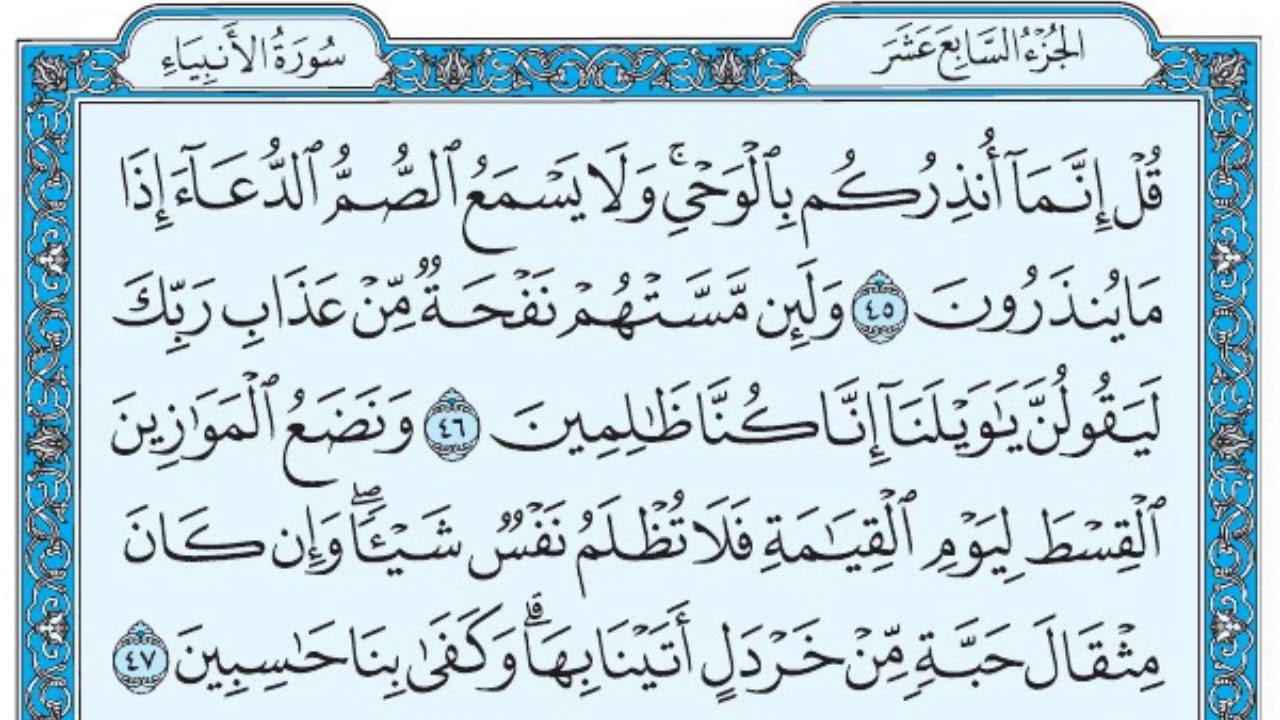 الجُزْءُ السَّابِعَ عَشَرَ
سُورَةُ الأَنبِيَاءِ
قُلْ إِنَّمَآ أُنذِرُكُم بِٱلْوَحْىِۚ وَلَا يَسْمَعُ ٱلصُّمُّ ٱلدُّعَآءَ إِذَا
مَا يُنذَرُونَ ٤٥ وَلَئِن مَّسَّتْهُمْ نَفْحَةٌ مِّنْ عَذَابِ رَبِّكَ
لَيَقُولُنَّ يَٰوَيْلَنَآ إِنَّا كُنَّا ظَٰلِمِينَ ٤٦ وَنَضَعُ ٱلْمَوَٰزِينَ
ٱلْقِسْطَ لِيَوْمِ ٱلْقِيَٰمَةِ فَلَا تُظْلَمُ نَفْسٌ شَيْـًٔاۖ وَإِن كَانَ
مِثْقَالَ حَبَّةٍ مِّنْ خَرْدَلٍ أَتَيْنَا بِهَاۗ وَكَفَىٰ بِنَا حَٰسِبِينَ ٤٧